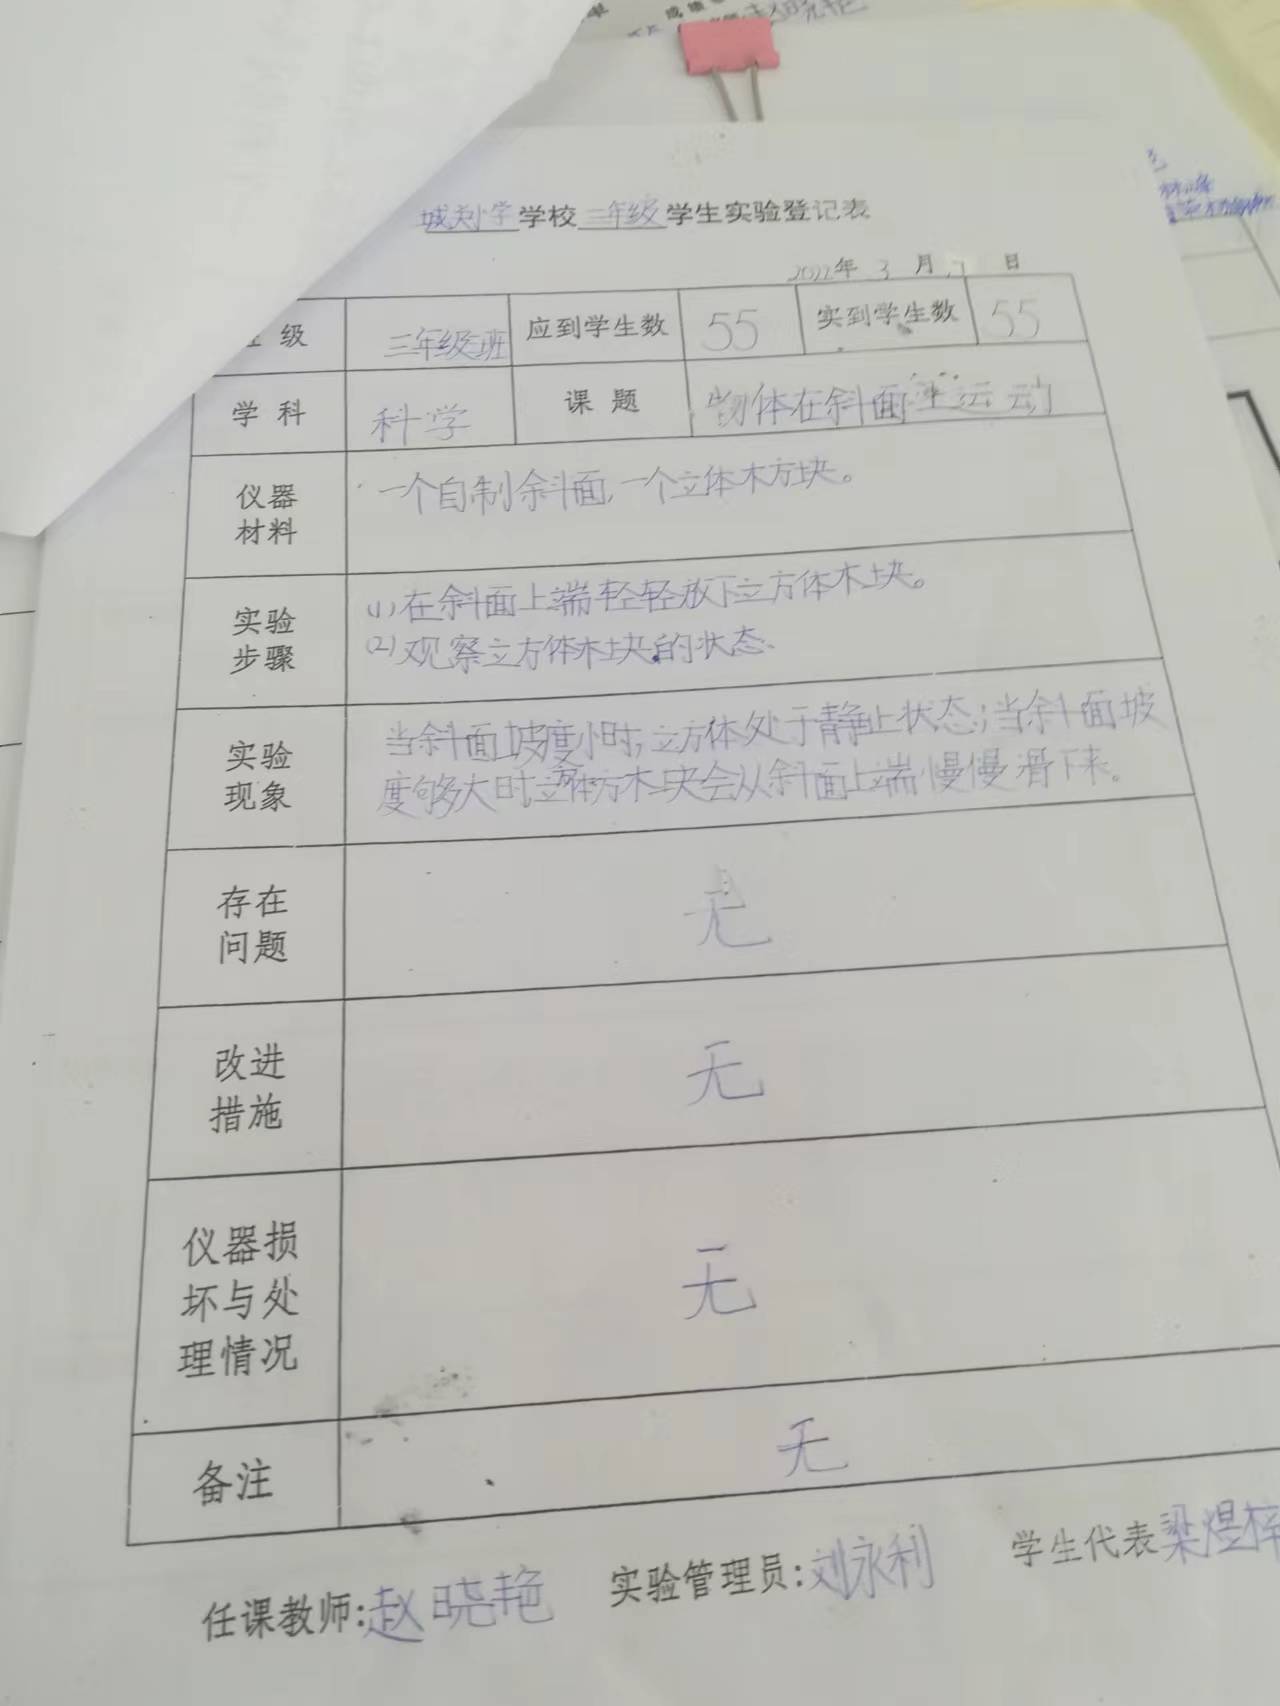 城关小学学校三年级学生实验登记表
2022年 3 月 日
级 三年级班 应到学生数 55 实到学生数 55
学科 科学 课题 物体在斜面上运动
仪器
材料
一个自制斜面,一个立体木方块。
实验
步骤
(1)在斜面上端轻轻放下立方体木块。
(2)观察立方体木块的状态.
实验
现象
当斜面坡度小时,立方体处于静止状态;当斜面坡
度够大时立体方木块会从斜面上端慢慢滑下来。
存在
问题
无
改进
措施
无
仪器损
坏与处
理情况
无
备注
无
任课教师:赵晓艳 实验管理员:刘永利 学生代表梁煜梓